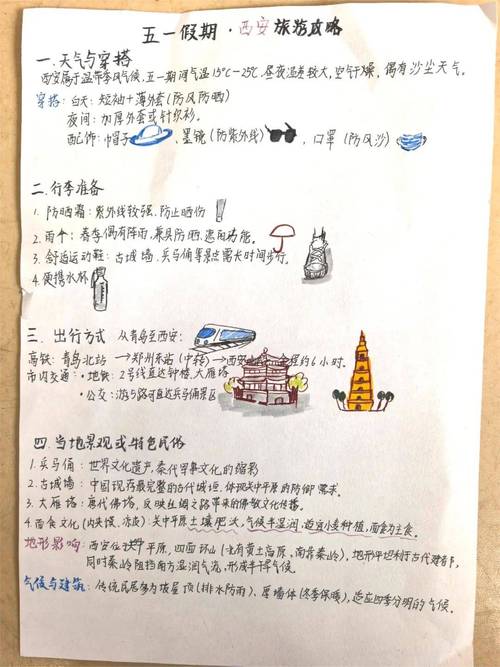 五一假期·西安旅游攻略
一.天气与穿搭
西安属于温带季风气候,五一期间气温15℃-25℃,昼夜温差较大,空气干燥,偶有沙尘天气。
穿搭:白天:短袖+薄外套(防风防晒)
夜间:加厚外套或针织衫。
配饰:帽子、墨镜(防紫外线)、口罩(防风沙)
二.行李准备
1.防晒霜:紫外线较强,防止晒伤
2.雨伞:春季偶有阵雨,兼具防晒、遮阳功能。
3.舒适运动鞋:古城墙、兵马俑等景点需长时间步行。
4.便携水杯
三.出行方式 从青岛至西安:
高铁:青岛北站→郑州东站(中转)→西安 全程约6小时。
市内交通:·地铁:2号线直达钟楼、大雁塔
·公交:游5路可直达兵马俑景区
四.当地景观或特色民俗
1.兵马俑:世界文化遗产,秦代军事文化的缩影
2.古城墙:中国现存最完整的古代城垣,体现关中平原的防御需求。
3.大雁塔:唐代佛塔,反映丝绸之路带来的佛教文化传播。
4.面食文化(肉夹馍、凉皮):关中平原土壤肥沃,气候半湿润,适宜小麦种植,面食为主食。
地形影响:西安位于关中平原,四面环山(北有黄土高原,南靠秦岭),地形平坦利于古代建都,
同时秦岭阻挡南方湿润气流,形成半干旱气候。
气候与建筑:传统民居多为坡屋顶(排水防雨)、厚墙体(冬季保暖),适应四季分明的气候。